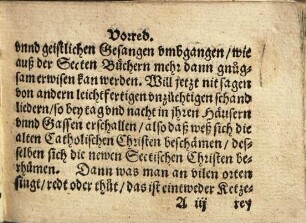 Vorred.
vnnd geistlichen Gesangen vmbgangen / wie
auß der Secten Büchern mehr dann gnůg-
sam erwisen kan werden. Will jetzt nit sagen
von andern leichtfertigen vnzüchtigen schand
liedern / so bey tag vnd nacht in jhren Häusern
vnnd Gassen erschallen / also daß weß sich die
alten Catholischen Christen beschämen / des-
selben sich die newen Sectischen Christen be-
rhümen. Dann was man an vilen orten
singt / redt oder thůt / das ist eintweder Ketze-
A iij rey